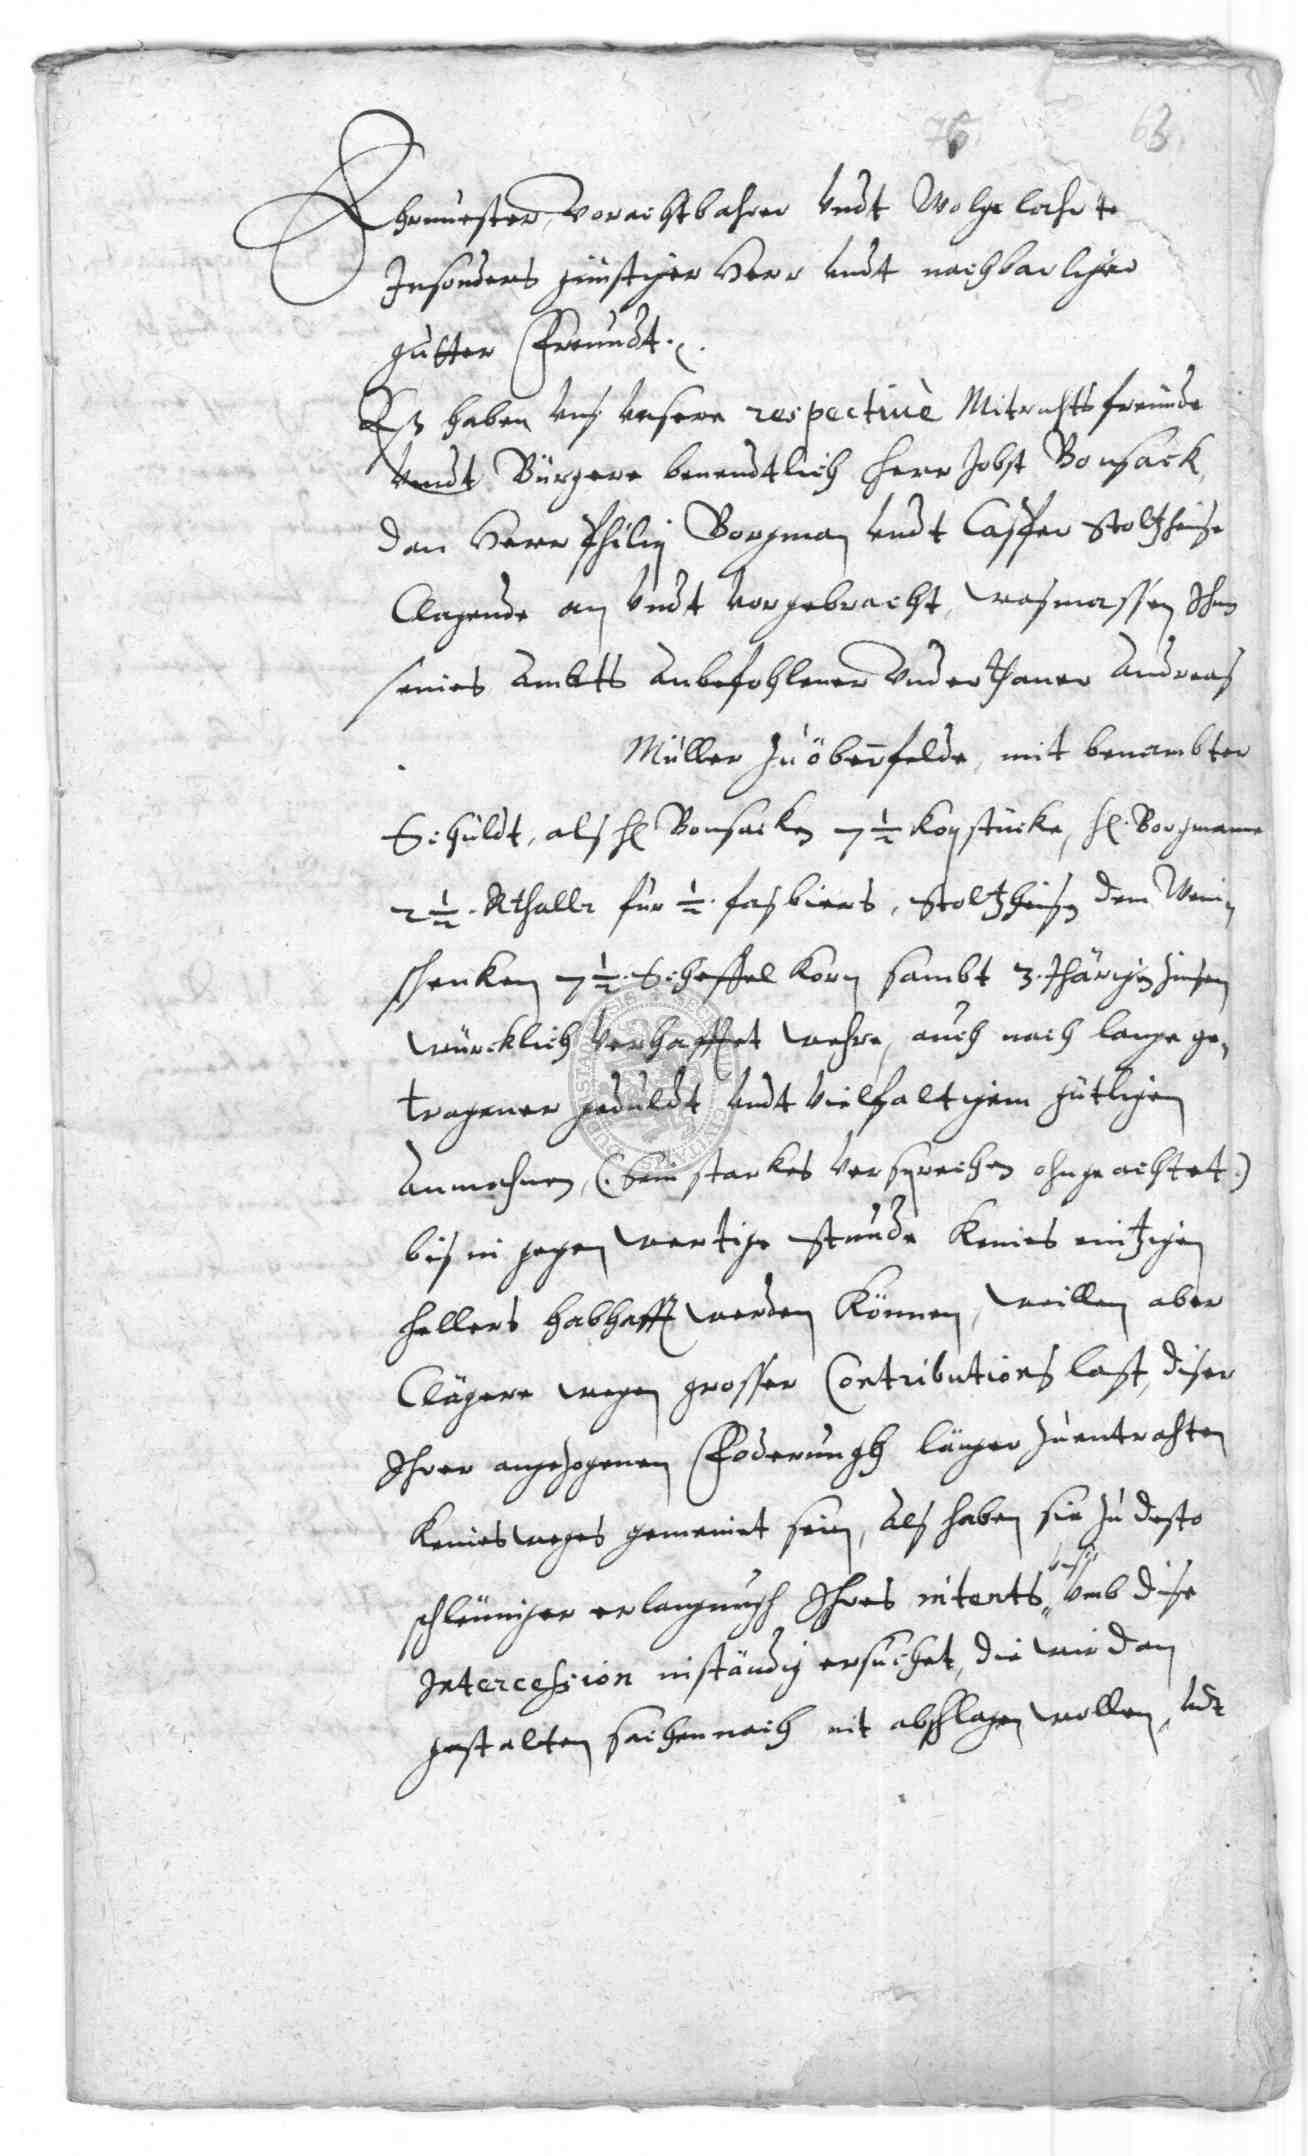 63
Ehrnuester, Vorachtbahrer Vndt Wolgelahrte
Insonders günstiger Herr Vndt nachbarlicher
gutter Freundt.
Eß haben Vnß Vnsere respectiuè Mitrahtsfreunde
Vndt Bürgere benendtlich Herr Jobst Bonsack,
dan Herr Philip Borgman Vndt Casper Stoltzheise
Clagende an Vndt Vorgebracht, waßmassen Ihnen
seines Ambtts Anbefohlener Vnderthaner Andreaß
Müller zu öbernfelde, mit benambter
Schuldt, alß H. Bonsacken 7 1/2 Kopstücke, H. Borgmanne
2 1/2. Rthallr für 1/2. faß biers, Stoltzheisen dem Wein
schenken 7 1/2. Scheffel Korn sambt 3. Jhärigen Zinsen
würcklich Verhafftet wehre, auch nach lange ge,
tragener geduldt Vndt Vielfaltigem gütligen
Anmahnen, (. sein starkes Versprechen ohngeachtet .)
biß in gegenwertige Stunde keines eintzigen
Hellers habhafft werden können, weillen aber
Clägere wegen grosser Contributions last, diser
Ihrer angezogenen Foderungh länger zuentrahten
keinesweges gemeinet sein, Alß haben sie zu desto
schleuniger erlangnuß Ihres intents Vmb dise
Intercession inständig ersuchet, die wir dan
gestalten sachen nach nit abschlagen wollen, Vndt